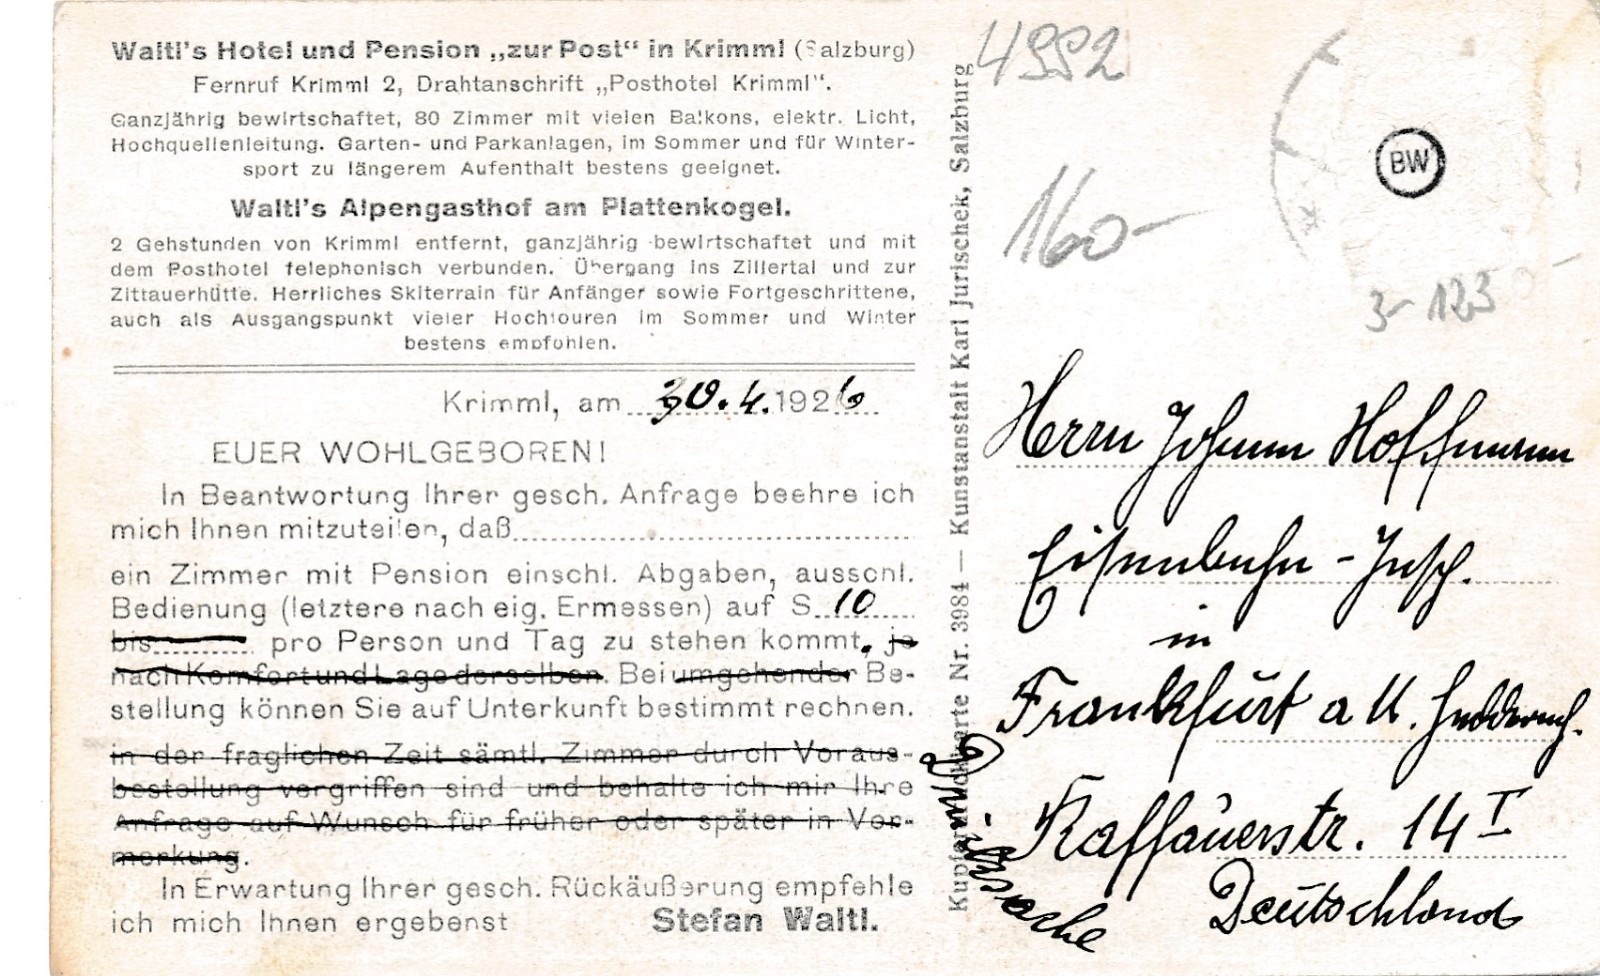 Waltl's Hotel und Pension „zur Post“ in Krimml (Salzburg)
Fernruf Krimml 2, Drahtanschrift „Posthotel Krimml“.
Ganzjährig bewirtschaftet, 80 Zimmer mit vielen Balkons, elektr. Licht,
Hochquellenleitung. Garten- und Parkanlagen, im Sommer und für Winter-
sport zu längerem Aufenthalt bestens geeignet.
Waltl's Alpengasthof am Plattenkogel.
2 Gehstunden von Krimml entfernt, ganzjährig bewirtschaftet und mit
dem Posthotel telephonisch verbunden. Übergang ins Zillertal und zur
Zittauerhütte. Herrliches Skiterrain für Anfänger sowie Fortgeschrittene,
auch als Ausgangspunkt vieler Hochtouren im Sommer und Winter
bestens empfohlen.
Krimml, am 30.4.1926
EUER WOHLGEBOREN!
In Beantwortung Ihrer gesch. Anfrage beehre ich
mich Ihnen mitzuteilen, daß
ein Zimmer mit Pension einschl. Abgaben, ausschl.
Bedienung (letztere nach eig. Ermessen) auf S. 10
bis pro Person und Tag zu stehen kommt, je
nach Komfort und Lage derselben. Bei umgehender Be-
stellung können Sie auf Unterkunft bestimmt rechnen.
in der fraglichen Zeit sämtl. Zimmer durch Voraus-
bestellung vergriffen sind und behalte ich mir Ihre
Anfrage auf Wunsch für früher oder später in Vor-
merkung.
In Erwartung Ihrer gesch. Rückäußerung empfehle
ich mich Ihnen ergebenst Stefan Waltl.
Kupferdruckkarte Nr. 3984 — Kunstanstalt Karl Jurischek, Salzburg
Drucksache
4992
160-
BW
3- 123
Herrn Johann Hoffmann
Eisenbahn-Insp.
in
Frankfurt a M.
14 I
Deutschland